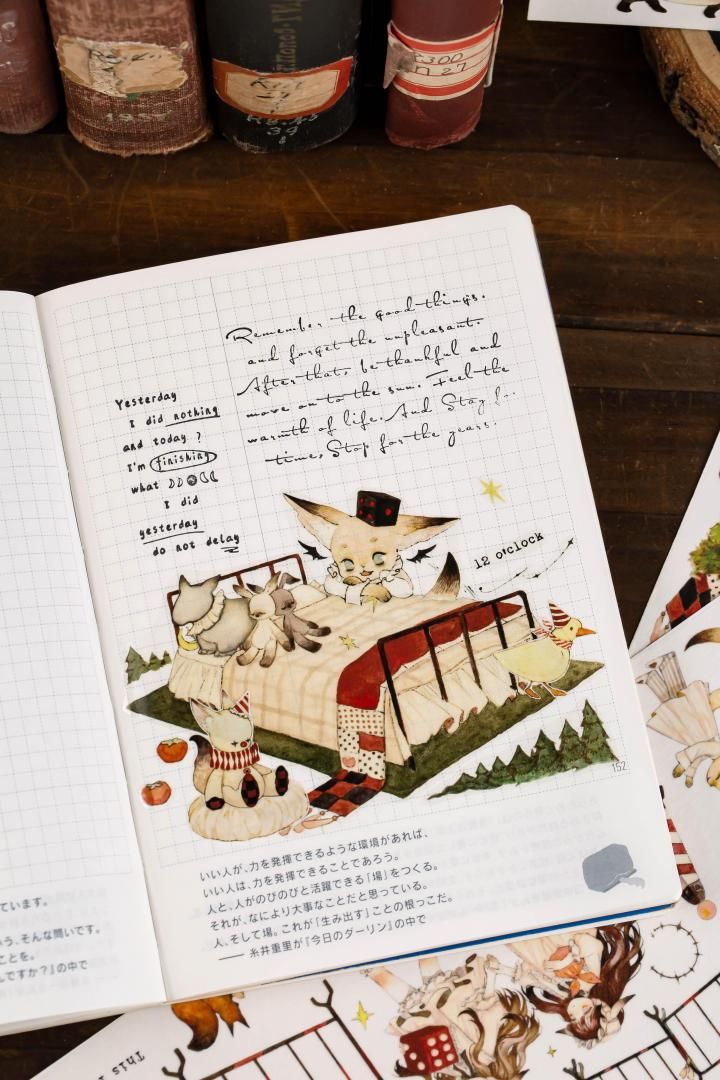 1957
39
8
300
27
Remember the good things.
and forget the unpleasant.
After that, be thankful and
move on to the sun. Feel the
warmth of life. And Stay
time, Stop for the years.
Yesterday
I did nothing
and today ?
I'm finishing
what
I did
yesterday
do not delay
12 o'clock
152
いい人が、力を発揮できるような環境があれば、
いい人は、力を発揮できることであろう。
人と、人がのびのびと活躍できる「場」をつくる。
それが、なにより大事なことだと思っている。
人、そして場。これが「生み出す」ことの根っこだ。
―― 糸井重里が『今日のダーリン』の中で
ています。
う、そんな問いです。
ことを。
んですか？』の中で
This